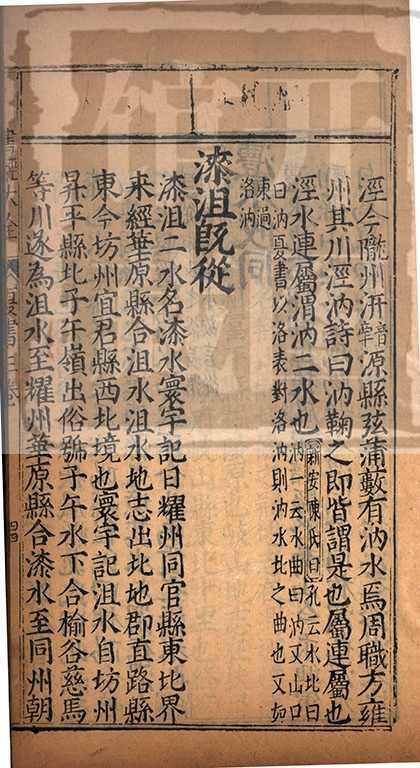 涇今隴州汧音牽源縣弦蒲藪有汭水焉周職方雍
州其川涇汭詩曰汭鞫之即皆謂是也屬連屬也
涇水連屬渭汭二水也新安陳氏曰孔云水北曰
汭一云水曲曰汭又山口
曰汭夏書以洛表對洛汭則汭水北之曲也又如
東過
洛汭
漆沮既從
漆沮二水名漆水寰宇記曰耀州同官縣東北界
來經華原縣合沮水沮水地志出北地郡直路縣
東今坊州宜君縣西北境也寰宇記沮水自坊州
昇平縣北子午嶺出俗號子午水下合榆谷慈馬
等川遂為沮水至耀州華原縣合漆水至同州朝
書經大全
夏書三卷
四